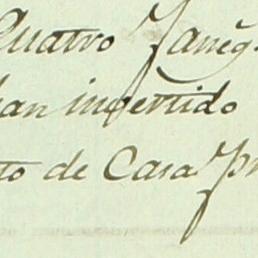 Quatro Faneg
han ingertido
to de Casa Pr